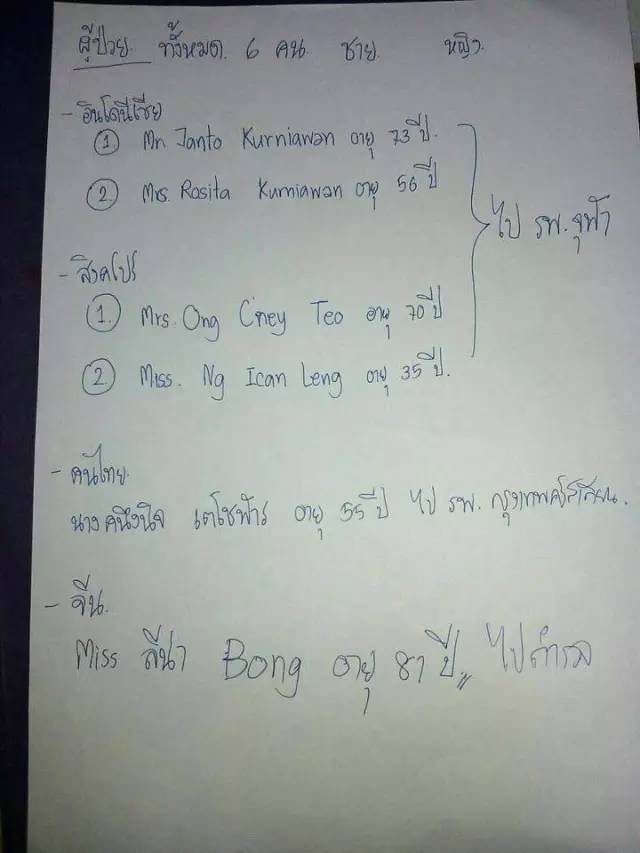 ผู้ป่วย. ทั้งหมด. 6 คน. ชาย. หญิง.
- อินโดนีเซีย
① Mr. Janto Kurniawan อายุ 73 ปี.
② Mrs. Rosita Kurniawan อายุ 56 ปี
ไป รพ. จุฬา
- สิงคโปร์
① Mrs. Ong Ciney Teo อายุ 70 ปี
② Miss. Ng Ican Leng อายุ 35 ปี.
- คนไทย.
นาง คนึงนิจ เตโชฬาร อายุ 55 ปี ไป รพ. กรุงเทพคริสเตียน.
- จีน.
Miss ลีน่า Bong อายุ 81 ปี ไปตำรวจ